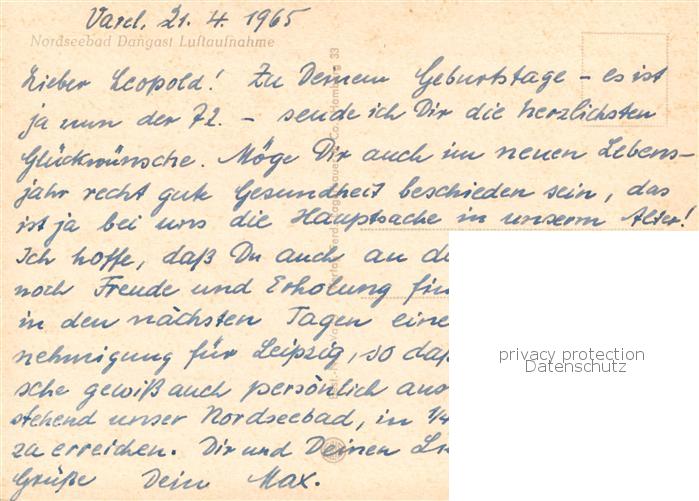 Varel, 21. 4. 1965
Nordseebad Dangast Luftaufnahme
Lieber Leopold! Zu Deinem Geburtstage – es ist
ja nun der 72. – sende ich Dir die herzlichsten
Glückwünsche. Möge Dir auch im neuen Lebens-
jahr recht gute Gesundheit beschieden sein, das
ist ja bei uns die Hauptsache in unserm Alter!
Ich hoffe, daß Du auch an de
noch Freude und Erholung fin
in den nächsten Tagen eine
nehmigung für Leipzig, so daß
sche gewiß auch persönlich aus
stehend unser Nordseebad, in 1/4
zu erreichen. Dir und Deinen
Grüße Dein Max.
privacy protection
Datenschutz